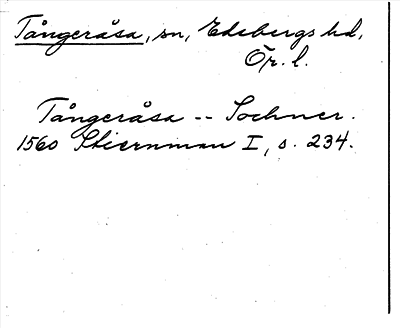 Tångeråsa, sn, Edsbergs hd,
Ör. l.
Tångeråsa -- Sochner.
1560 Stiernman I, s. 234.